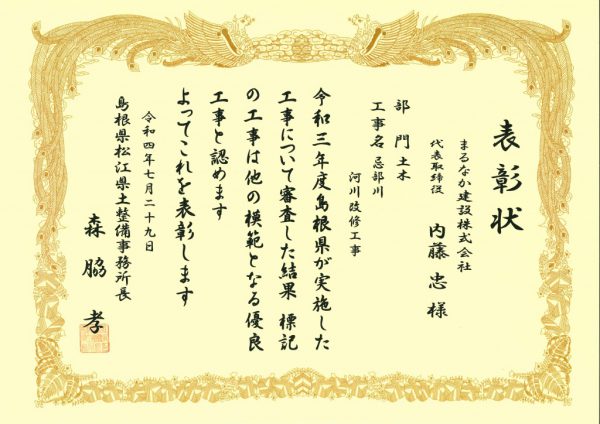 表彰状
まるなか建設株式会社
代表取締役 内藤忠様
部門 土木
工事名 忌部川
河川改修工事
令和三年度島根県が実施した
工事について審査した結果 標記
の工事は他の模範となる優良
工事と認めます
よってこれを表彰します
令和四年七月二十九日
島根県松江県土整備事務所長
森脇孝